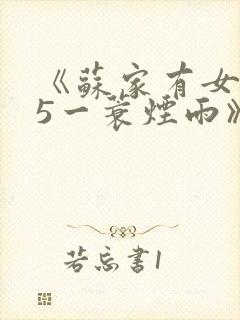 《蘇家有女
5一蓑煙雨》
若忘書1